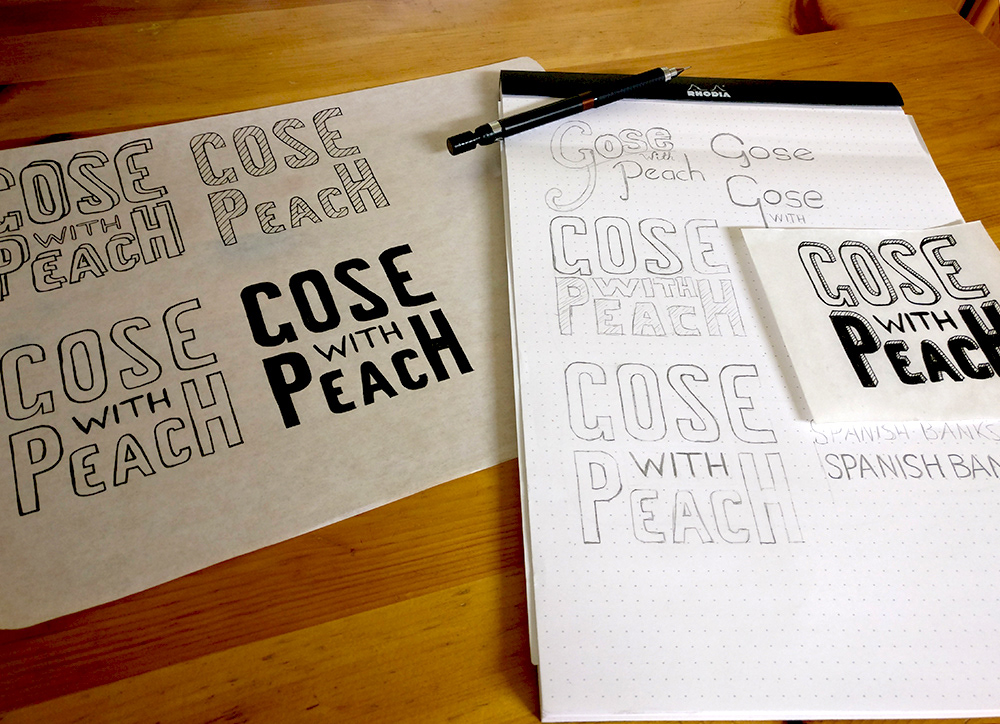 GOSE
WITH
PEACH
GOSE
PEACH
GOSE
WITH
PEACH
GOSE
WITH
PEACH
RHODIA
Gose
with
Peach
Gose
Gose
WITH
GOSE
WITH
PEACH
GOSE
WITH
PEACH
GOSE
WITH
PEACH
SPANISH BANKS
SPANISH BAN